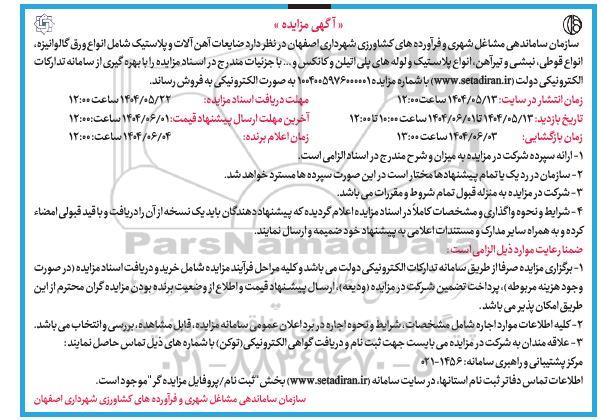 « آگهی مزایده »
سازمان ساماندهی مشاغل شهری و فرآورده های کشاورزی شهرداری اصفهان در نظر دارد ضایعات آهن آلات و پلاستیک شامل انواع ورق گالوانیزه،
انواع قوطی، نبشی و تیرآهن، انواع پلاستیک و لوله های پلی اتیلن و کانکس و... با جزئیات مندرج در اسناد مزایده را با بهره گیری از سامانه تدارکات
الکترونیکی دولت (www.setadiran.ir) با شماره مزایده ۱۰۰۴۰۰۵۹۷۶۰۰۰۰۰۱ به صورت الکترونیکی به فروش رساند.
زمان انتشار در سایت: ۱۴۰۴/۰۵/۱۳ ساعت ۱۲:۰۰ مهلت دریافت اسناد مزایده: ۱۴۰۴/۰۵/۲۲ ساعت ۱۲:۰۰
تاریخ بازدید: ۱۴۰۴/۰۵/۱۳ تا ۱۴۰۴/۰۶/۰۱ ساعت ۱۰:۰۰ تا ۱۲:۰۰ آخرین مهلت ارسال پیشنهاد قیمت: ۱۴۰۴/۰۶/۰۱ ساعت: ۱۲:۰۰
زمان بازگشایی: ۱۴۰۴/۰۶/۰۳ ساعت ۱۳:۰۰ زمان اعلام برنده: ۱۴۰۴/۰۶/۰۴ ساعت: ۱۲:۰۰
۱- ارائه سپرده شرکت در مزایده به میزان و شرح مندرج در اسناد الزامی است.
۲- سازمان در رد یک یا تمام پیشنهادها مختار است در این صورت سپرده ها مسترد خواهد شد.
۳- شرکت در مزایده به منزله قبول تمام شروط و مقررات می باشد.
۴- شرایط و نحوه واگذاری و مشخصات کاملاً در اسناد مزایده اعلام گردیده که پیشنهاد دهندگان باید یک نسخه از آن را دریافت و با قید قبولی امضاء
کرده و به همراه سایر مدارک و مستندات اعلامی به پیشنهاد خود ضمیمه و ارسال نمایند.
ضمنا رعایت موارد ذیل الزامی است:
۱- برگزاری مزایده صرفا از طریق سامانه تدارکات الکترونیکی دولت می باشد و کلیه مراحل فرآیند مزایده شامل خرید و دریافت اسناد مزایده (در صورت
وجود هزینه مربوطه)، پرداخت تضمین شرکت در مزایده (ودیعه)، ارسال پیشنهاد قیمت و اطلاع از وضعیت برنده بودن مزایده گران محترم از این
طریق امکان پذیر می باشد.
۲- کلیه اطلاعات موارد اجاره شامل مشخصات، شرایط و نحوه اجاره در برد اعلان عمومی سامانه مزایده، قابل مشاهده، بررسی و انتخاب می باشد.
۳- علاقه مندان به شرکت در مزایده می بایست جهت ثبت نام و دریافت گواهی الکترونیکی (توکن) با شماره های ذیل تماس حاصل نمایند:
مرکز پشتیبانی و راهبری سامانه: ۱۴۵۶-۰۲۱
اطلاعات تماس دفاتر ثبت نام استانها، در سایت سامانه (www.setadiran.ir) بخش "ثبت نام/پروفایل مزایده گر" موجود است.
سازمان ساماندهی مشاغل شهری و فرآورده های کشاورزی شهرداری اصفهان
ParsNamadData
۰۲۱-۸۸۳۴۹۶۷۰-۵